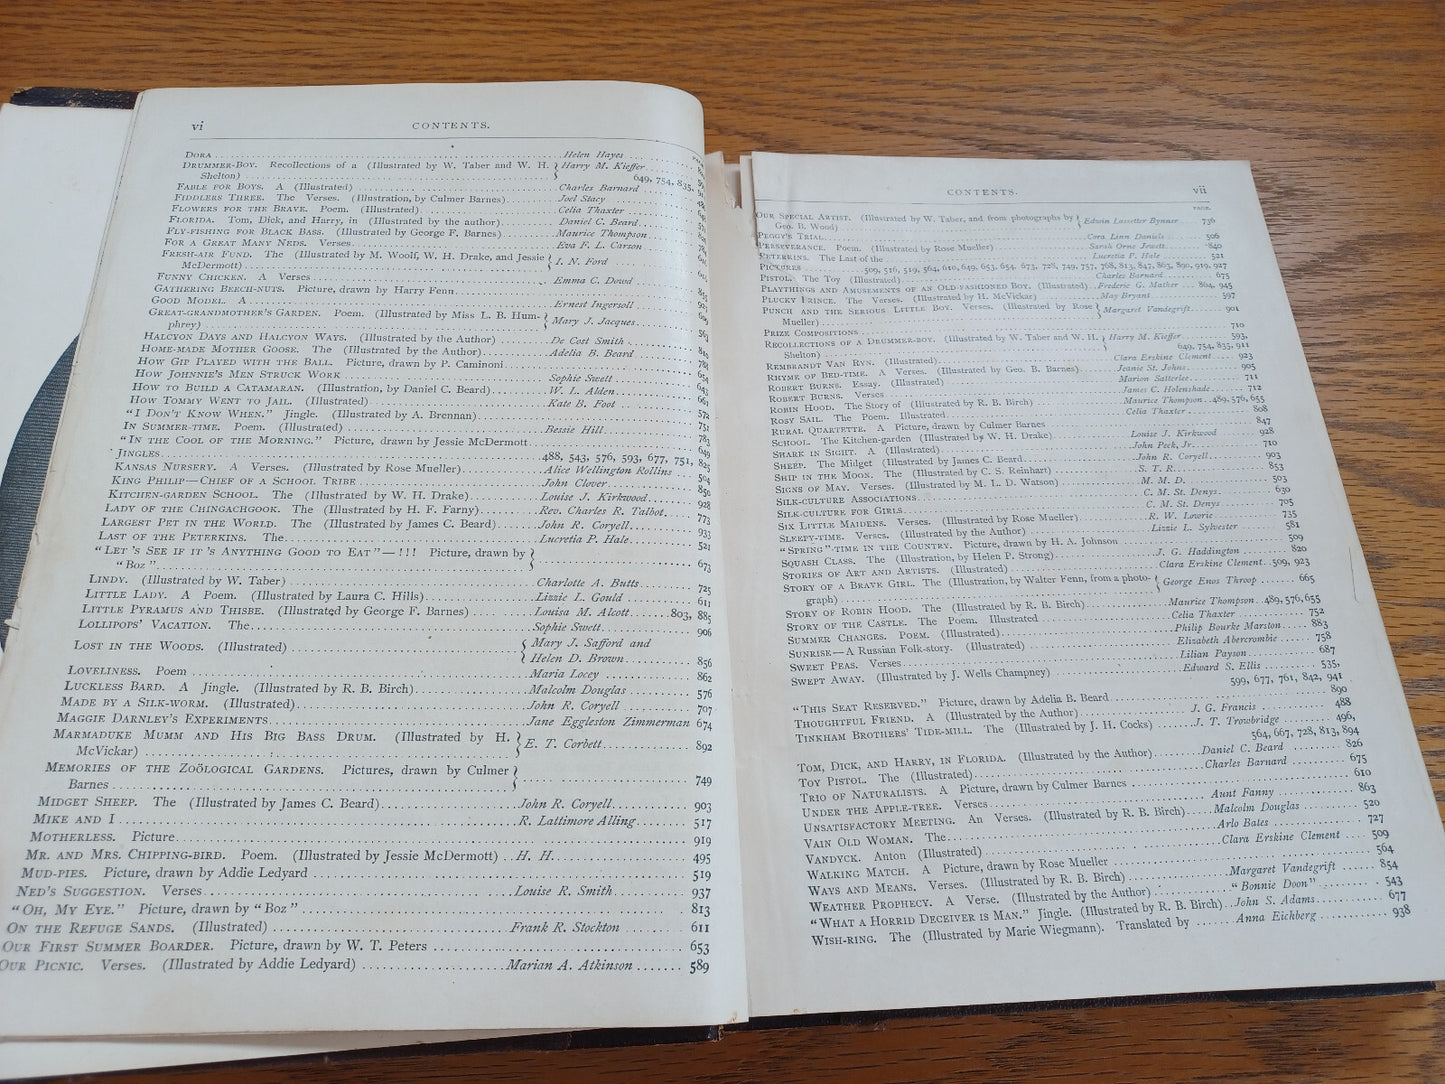 vi CONTENTS.
DORA Helen Hayes
DRUMMER-BOY. Recollections of a (Illustrated by W. Taber and W. H. Shelton) Harry M. Kieffer
649, 754, 835,
FABLE FOR BOYS. A (Illustrated) Charles Barnard
FIDDLERS THREE. The Verses. (Illustration, by Culmer Barnes) Joel Stacy
FLOWERS FOR THE BRAVE. Poem. (Illustrated) Celia Thaxter
FLORIDA. Tom, Dick, and Harry, in (Illustrated by the author) Daniel C. Beard
FLY-FISHING FOR BLACK BASS. (Illustrated by George F. Barnes) Maurice Thompson
FOR A GREAT MANY NEDS. Verses Eva F. L. Carson
FRESH-AIR FUND. The (Illustrated by M. Woolf, W. H. Drake, and Jessie McDermott) I. N. Ford
FUNNY CHICKEN. A Verses Emma C. Dowd
GATHERING BEECH-NUTS. Picture, drawn by Harry Fenn
GOOD MODEL. A Ernest Ingersoll
GREAT-GRANDMOTHER'S GARDEN. Poem. (Illustrated by Miss L. B. Humphrey) Mary J. Jacques
HALCYON DAYS AND HALCYON WAYS. (Illustrated by the Author) De Cost Smith
HOME-MADE MOTHER GOOSE. The (Illustrated by the Author) Adelia B. Beard
HOW GIP PLAYED WITH THE BALL. Picture, drawn by P. Caminoni
HOW JOHNNIE'S MEN STRUCK WORK Sophie Swett
HOW TO BUILD A CATAMARAN. (Illustration, by Daniel C. Beard) W. L. Alden
HOW TOMMY WENT TO JAIL. (Illustrated) Kate B. Foot
"I DON'T KNOW WHEN." Jingle. (Illustrated by A. Brennan) 572
IN SUMMER-TIME. Poem. (Illustrated) Bessie Hill 751
"IN THE COOL OF THE MORNING." Picture, drawn by Jessie McDermott 783
JINGLES 488, 543, 576, 593, 677, 751, 825
KANSAS NURSERY. A Verses. (Illustrated by Rose Mueller) Alice Wellington Rollins
KING PHILIP—CHIEF OF A SCHOOL TRIBE John Clover 504
KITCHEN-GARDEN SCHOOL. The (Illustrated by W. H. Drake) Louise J. Kirkwood 928
LADY OF THE CHINGACHGOOK. The (Illustrated by H. F. Farny) Rev. Charles R. Talbot 773
LARGEST PET IN THE WORLD. The (Illustrated by James C. Beard) John R. Coryell 933
LAST OF THE PETERKINS. The Lucretia P. Hale 521
"LET 'S SEE IF IT 'S ANYTHING GOOD TO EAT"—!!! Picture, drawn by "Boz" 673
LINDY. (Illustrated by W. Taber) Charlotte A. Butts 725
LITTLE LADY. A Poem. (Illustrated by Laura C. Hills) Lizzie L. Gould 611
LITTLE PYRAMUS AND THISBE. (Illustrated by George F. Barnes) Louisa M. Alcott 803, 885
LOLLIPOPS' VACATION. The Sophie Swett 906
LOST IN THE WOODS. (Illustrated) Mary J. Safford and Helen D. Brown 856
LOVELINESS. Poem Maria Locey 862
LUCKLESS BARD. A Jingle. (Illustrated by R. B. Birch) Malcolm Douglas 576
MADE BY A SILK-WORM. (Illustrated) John R. Coryell 707
MAGGIE DARNLEY'S EXPERIMENTS Jane Eggleston Zimmerman 674
MARMADUKE MUMM AND HIS BIG BASS DRUM. (Illustrated by H. McVickar) E. T. Corbett 892
MEMORIES OF THE ZOÖLOGICAL GARDENS. Pictures, drawn by Culmer Barnes 749
MIDGET SHEEP. The (Illustrated by James C. Beard) John R. Coryell 903
MIKE AND I R. Lattimore Alling 517
MOTHERLESS. Picture 919
MR. AND MRS. CHIPPING-BIRD. Poem. (Illustrated by Jessie McDermott) H. H. 495
MUD-PIES. Picture, drawn by Addie Ledyard 519
NED'S SUGGESTION. Verses Louise R. Smith 937
"OH, MY EYE." Picture, drawn by "Boz" 813
ON THE REFUGE SANDS. (Illustrated) Frank R. Stockton 611
OUR FIRST SUMMER BOARDER. Picture, drawn by W. T. Peters 653
OUR PICNIC. Verses. (Illustrated by Addie Ledyard) Marian A. Atkinson 589
CONTENTS. vii
PAGE.
OUR SPECIAL ARTIST. (Illustrated by W. Taber, and from photographs by Geo. B. Wood) Edwin Lassetter Bynner 736
PEGGY'S TRIAL Cora Linn Daniels 506
PERSEVERANCE. Poem. (Illustrated by Rose Mueller) Sarah Orne Jewett 840
PETERKINS. The Last of the Lucretia P. Hale 521
PICTURES 509, 516, 519, 564, 610, 649, 653, 654, 673, 728, 749, 757, 768, 813, 847, 863, 890, 919, 927
PISTOL. The Toy (Illustrated) Charles Barnard 675
PLAYTHINGS AND AMUSEMENTS OF AN OLD-FASHIONED BOY. (Illustrated) Frederic G. Mather 864, 945
PLUCKY PRINCE. The Verses. (Illustrated by H. McVickar) May Bryant 597
PUNCH AND THE SERIOUS LITTLE BOY. Verses. (Illustrated by Rose Mueller) Margaret Vandegrift 901
PRIZE COMPOSITIONS 710
RECOLLECTIONS OF A DRUMMER-BOY. (Illustrated by W. Taber and W. H. Shelton) Harry M. Kieffer 593,
649, 754, 835, 911
REMBRANDT VAN RYN. (Illustrated) Clara Erskine Clement 923
RHYME OF BED-TIME. A Verses. (Illustrated by Geo. B. Barnes) Jeanie St. Johns 905
ROBERT BURNS. Essay. (Illustrated) Marion Satterlee 711
ROBERT BURNS. Verses James C. Holenshade 712
ROBIN HOOD. The Story of (Illustrated by R. B. Birch) Maurice Thompson 489, 576, 655
ROSY SAIL. The Poem. Illustrated Celia Thaxter 808
RURAL QUARTETTE. A Picture, drawn by Culmer Barnes 847
SCHOOL. The Kitchen-garden (Illustrated by W. H. Drake) Louise J. Kirkwood 928
SHARK IN SIGHT. A (Illustrated) John Peck, Jr. 710
SHEEP. The Midget (Illustrated by James C. Beard) John R. Coryell 903
SHIP IN THE MOON. The (Illustrated by C. S. Reinhart) S. T. R. 853
SIGNS OF MAY. Verses. (Illustrated by M. L. D. Watson) M. M. D. 503
SILK-CULTURE ASSOCIATIONS C. M. St. Denys 630
SILK-CULTURE FOR GIRLS C. M. St. Denys 705
SIX LITTLE MAIDENS. Verses. (Illustrated by Rose Mueller) R. W. Lowrie 735
SLEEPY-TIME. Verses. (Illustrated by the Author) Lizzie L. Sylvester 581
"SPRING"-TIME IN THE COUNTRY. Picture, drawn by H. A. Johnson 509
SQUASH CLASS. The (Illustration, by Helen P. Strong) J. G. Haddington 820
STORIES OF ART AND ARTISTS. (Illustrated) Clara Erskine Clement 509, 923
STORY OF A BRAVE GIRL. The (Illustration, by Walter Fenn, from a photograph) George Enos Throop 665
STORY OF ROBIN HOOD. The (Illustrated by R. B. Birch) Maurice Thompson 489, 576, 655
STORY OF THE CASTLE. The Poem. Illustrated Celia Thaxter 752
SUMMER CHANGES. POEM. (Illustrated) Philip Bourke Marston 883
SUNRISE—A Russian Folk-story. (Illustrated) Elizabeth Abercrombie 758
SWEET PEAS. Verses Lilian Payson 687
SWEPT AWAY. (Illustrated by J. Wells Champney) Edward S. Ellis 535,
599, 677, 761, 842, 941
"THIS SEAT RESERVED." Picture, drawn by Adelia B. Beard 890
THOUGHTFUL FRIEND. A (Illustrated by the Author) J. G. Francis 488
TINKHAM BROTHERS' TIDE-MILL. The (Illustrated by J. H. Cocks) J. T. Trowbridge 496,
564, 667, 728, 813, 894
TOM, DICK, AND HARRY, IN FLORIDA. (Illustrated by the Author) Daniel C. Beard 826
TOY PISTOL. The (Illustrated) Charles Barnard 675
TRIO OF NATURALISTS. A Picture, drawn by Culmer Barnes 610
UNDER THE APPLE-TREE. Verses Aunt Fanny 863
UNSATISFACTORY MEETING. An Verses. (Illustrated by R. B. Birch) Malcolm Douglas 520
VAIN OLD WOMAN. The Arlo Bates 727
VANDYCK. Anton (Illustrated) Clara Erskine Clement 509
WALKING MATCH. A Picture, drawn by Rose Mueller 564
WAYS AND MEANS. Verses. (Illustrated by R. B. Birch) Margaret Vandegrift 854
WEATHER PROPHECY. A Verse. (Illustrated by the Author) "Bonnie Doon" 543
"WHAT A HORRID DECEIVER IS MAN." Jingle. (Illustrated by R. B. Birch) John S. Adams 677
WISH-RING. The (Illustrated by Marie Wiegmann). Translated by Anna Eichberg 938